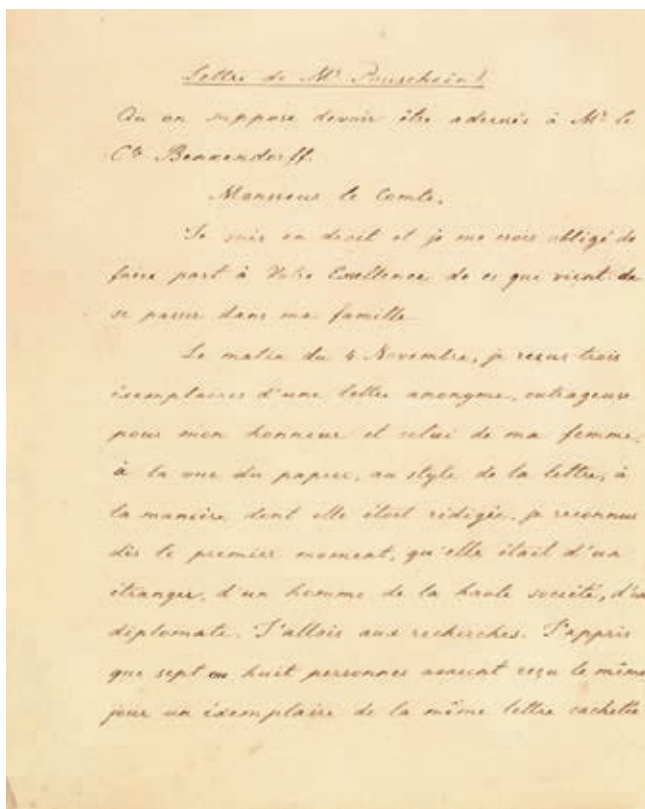 Lettre de Mr Pouschkin
Qu on suppose devoir être adressée à Mr le
Cte Benkendorff.
Monsieur le Comte,
Je suis en droit et je me crois obligé de
faire part à Votre Excellence de ce qui vient de
se passer dans ma famille
Le matin du 4 Novembre, je reçus trois
éxemplaires d'une lettre anonyme, outrageuse
pour mon honneur et celui de ma femme,
à la vue du papier, au style de la lettre, à
la manière dont elle était rédigée, je reconnus
dès le premier moment, qu'elle était d'un
étranger, d'un homme de la haute société, d'un
diplomate. J'allais aux recherches. J'appris
que sept ou huit personnes avaient reçu le même
jour un éxemplaire de la même lettre cachetée